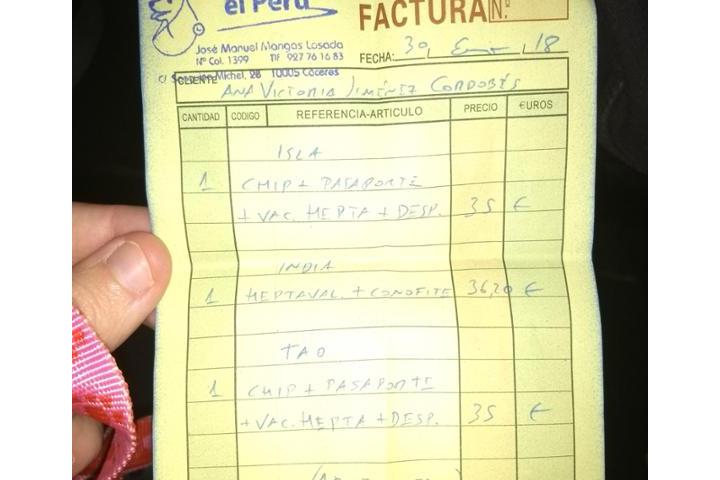 el Perú
FACTURA Nº
José Manuel Mangas Losada
Nº Col. 1399 Tlf 927 76 16 83
FECHA: 30, Enero, 18
Michel, 28 10005 Cáceres
CLIENTE
ANA VICTORIA JIMÉNEZ CORDOBÉS
CANTIDAD CODIGO REFERENCIA-ARTICULO PRECIO €UROS
ISLA
1 CHIP + PASAPORTE
+ VAC. HEPTA + DESP. 35 €
INDIA
1 HEPTAVAL. + CONOFITE 36,20 €
TAO
1 CHIP + PASAPORTE
+ VAC. HEPTA + DESP. 35 €